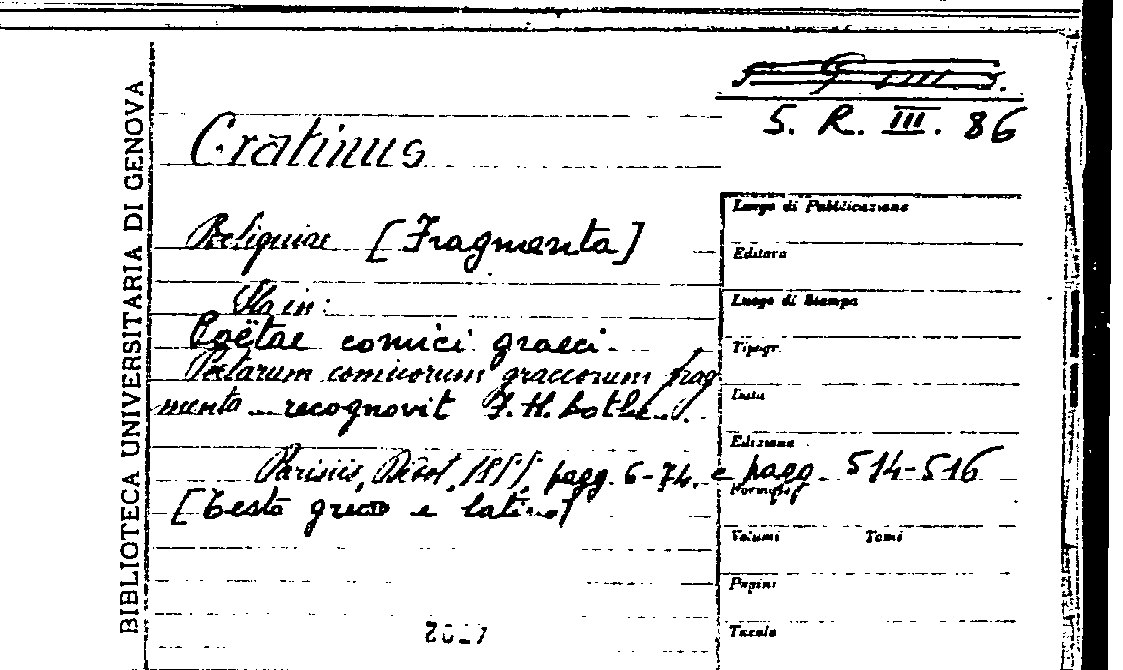 BIBLIOTECA UNIVERSITARIA DI GENOVA
S. R. III. 86
Cratinus
Reliquiae [Fragmenta]
Sta in:
Poëtae comici graeci.
Poetarum comicorum graecorum frag
menta recognovit F. H. Bothe.
Parisiis, Didot, 1855, pagg. 6-74. e pagg. 514-516
[Testo greco e latino]
Luogo di Pubblicazione
Editore
Luogo di Stampa
Tipogr.
Data
Edizione
Formato
Volumi Tomi
Pagine
Tavole